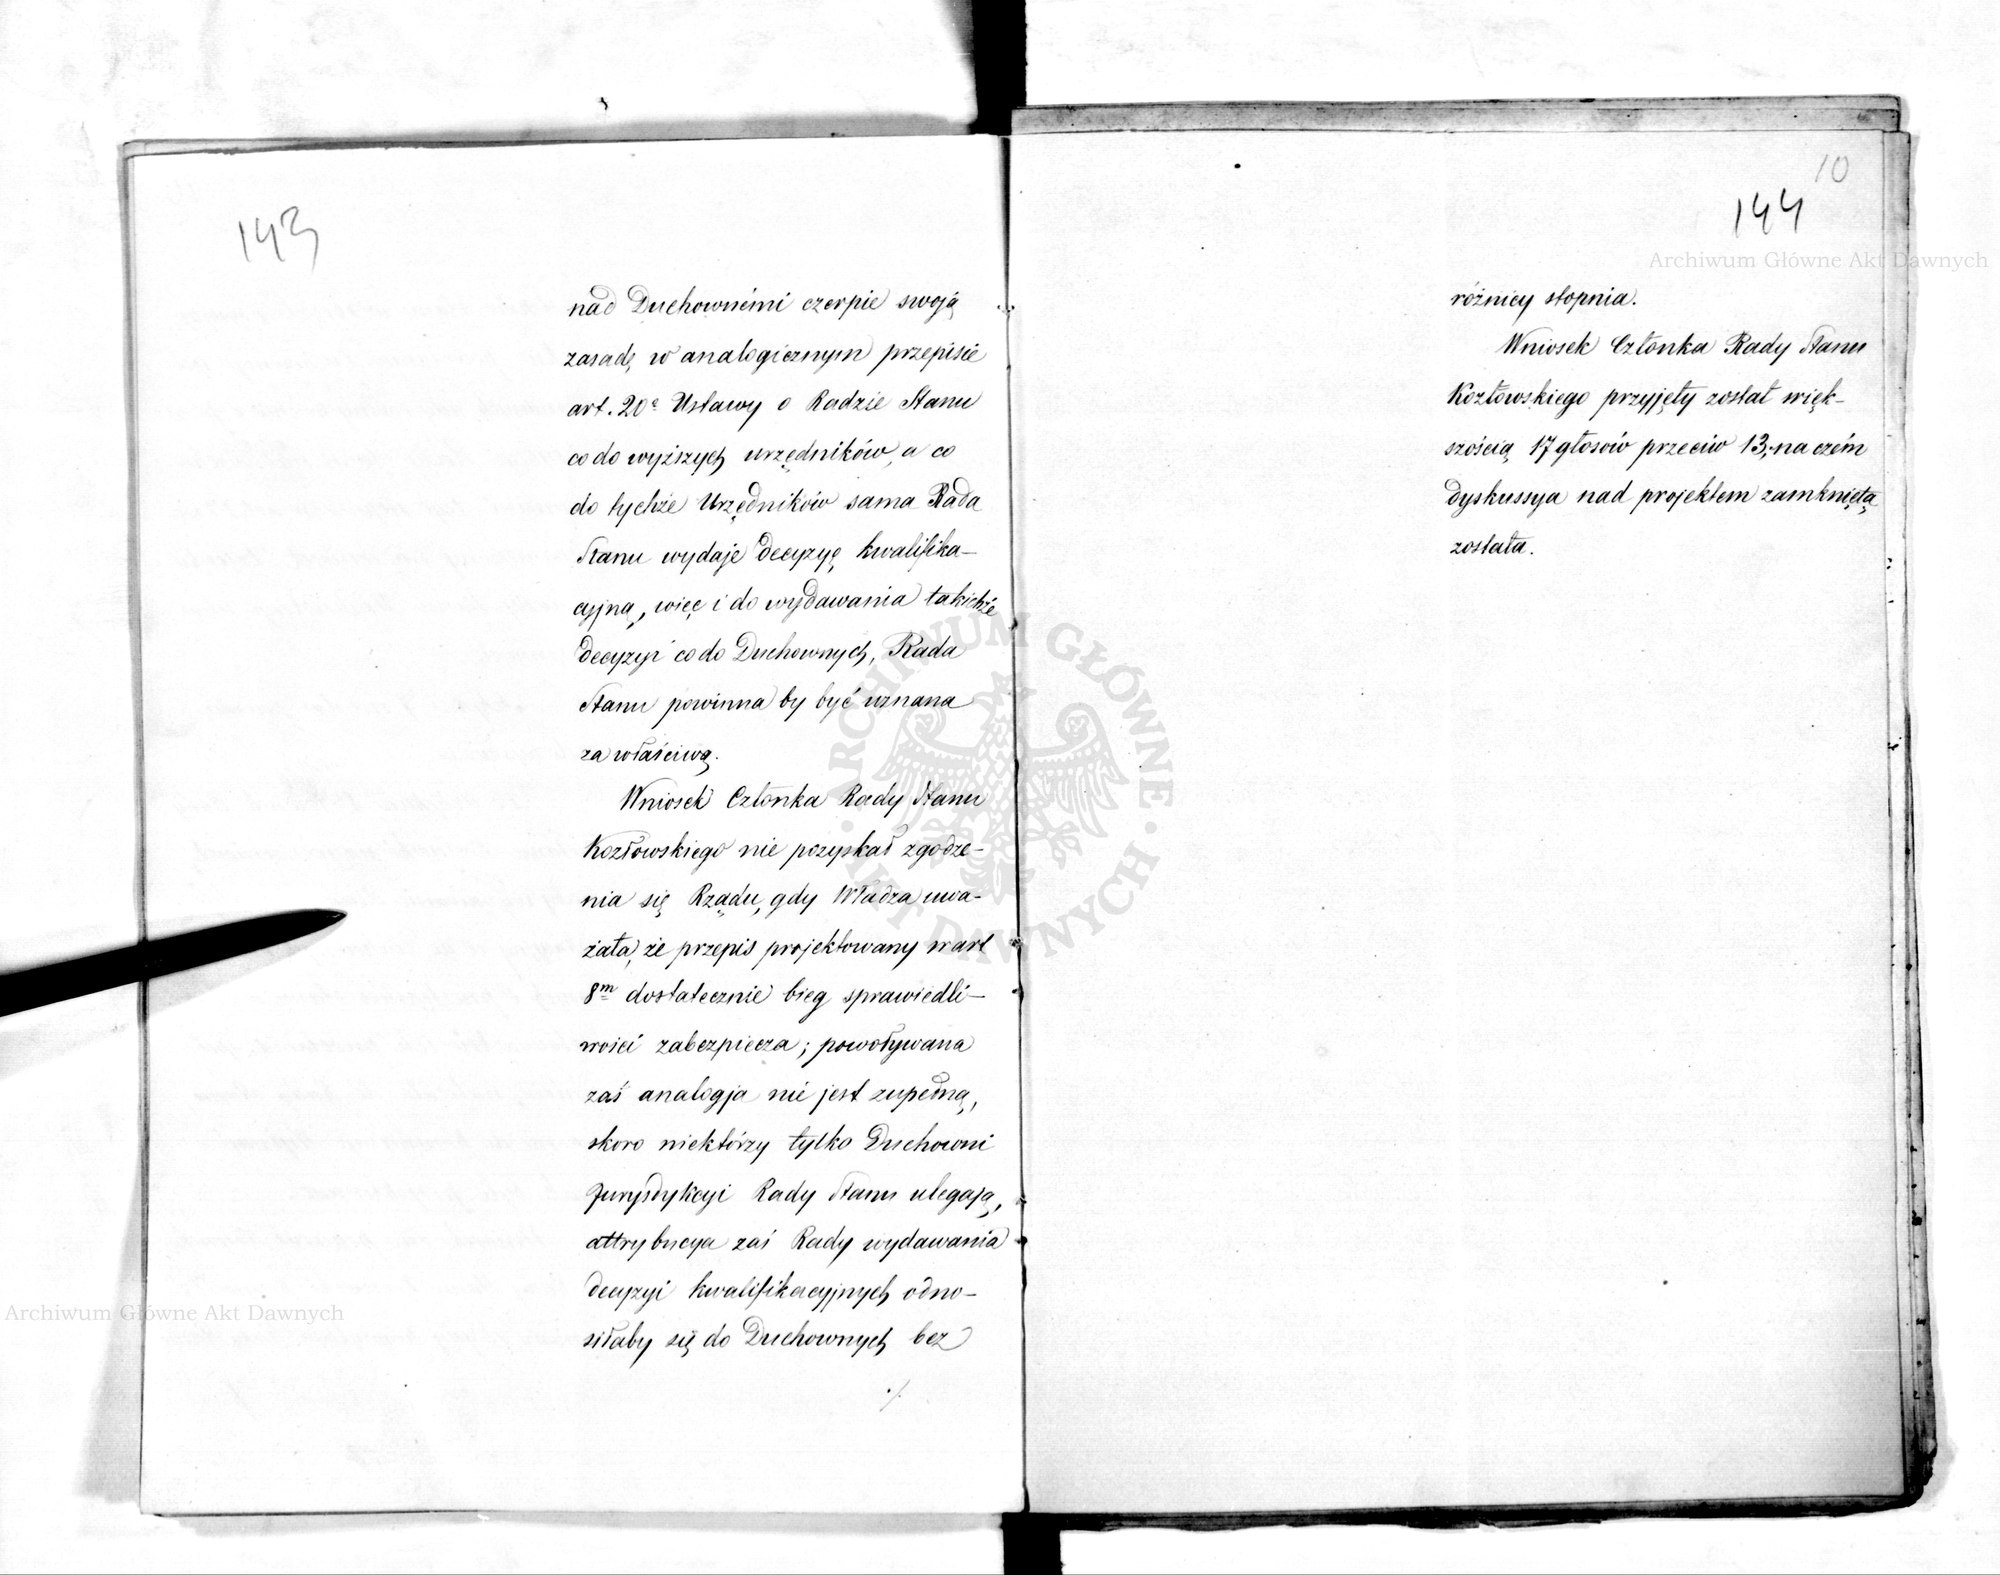 143
nad Duchownémi czerpie swoją
zasadę w analogicznym przepisie
art. 20e Ustawy o Radzie Stanu
co do wyższych urzędników, a co
do tychże Urzędników sama Rada
Stanu wydaje decyzyę kwalifika-
cyjną, więc i do wydawania takichże
decyzyi co do Duchownych, Rada
Stanu powinna by być uznana
za właściwą.
Wniosek Członka Rady Stanu
Kozłowskiego nie pozyskał zgodze-
nia się Rządu, gdy Władza uwa-
żała, że przepis projektowany w art
8m dostatecznie bieg sprawiedli-
wości zabezpiecza; powoływana
zaś analogja nie jest zupełną,
skoro niektórzy tylko Duchowni
Jurysdykcyi Rady Stanu ulegają,
attrybucya zaś Rady wydawania
decyzyi kwalifikacyjnych odno-
siłaby się do Duchownych bez
./.
10
144
różnicy stopnia.
Wniosek Członka Rady Stanu
Kozłowskiego przyjęty został więk-
szością 17 głosów przeciw 13, na czém
dyskussya nad projektem zamkniętą
została.
Archiwum Główne Akt Dawnych
Archiwum Główne Akt Dawnych
ARCHIWUM GŁÓWNE · AKT DAWNYCH ·